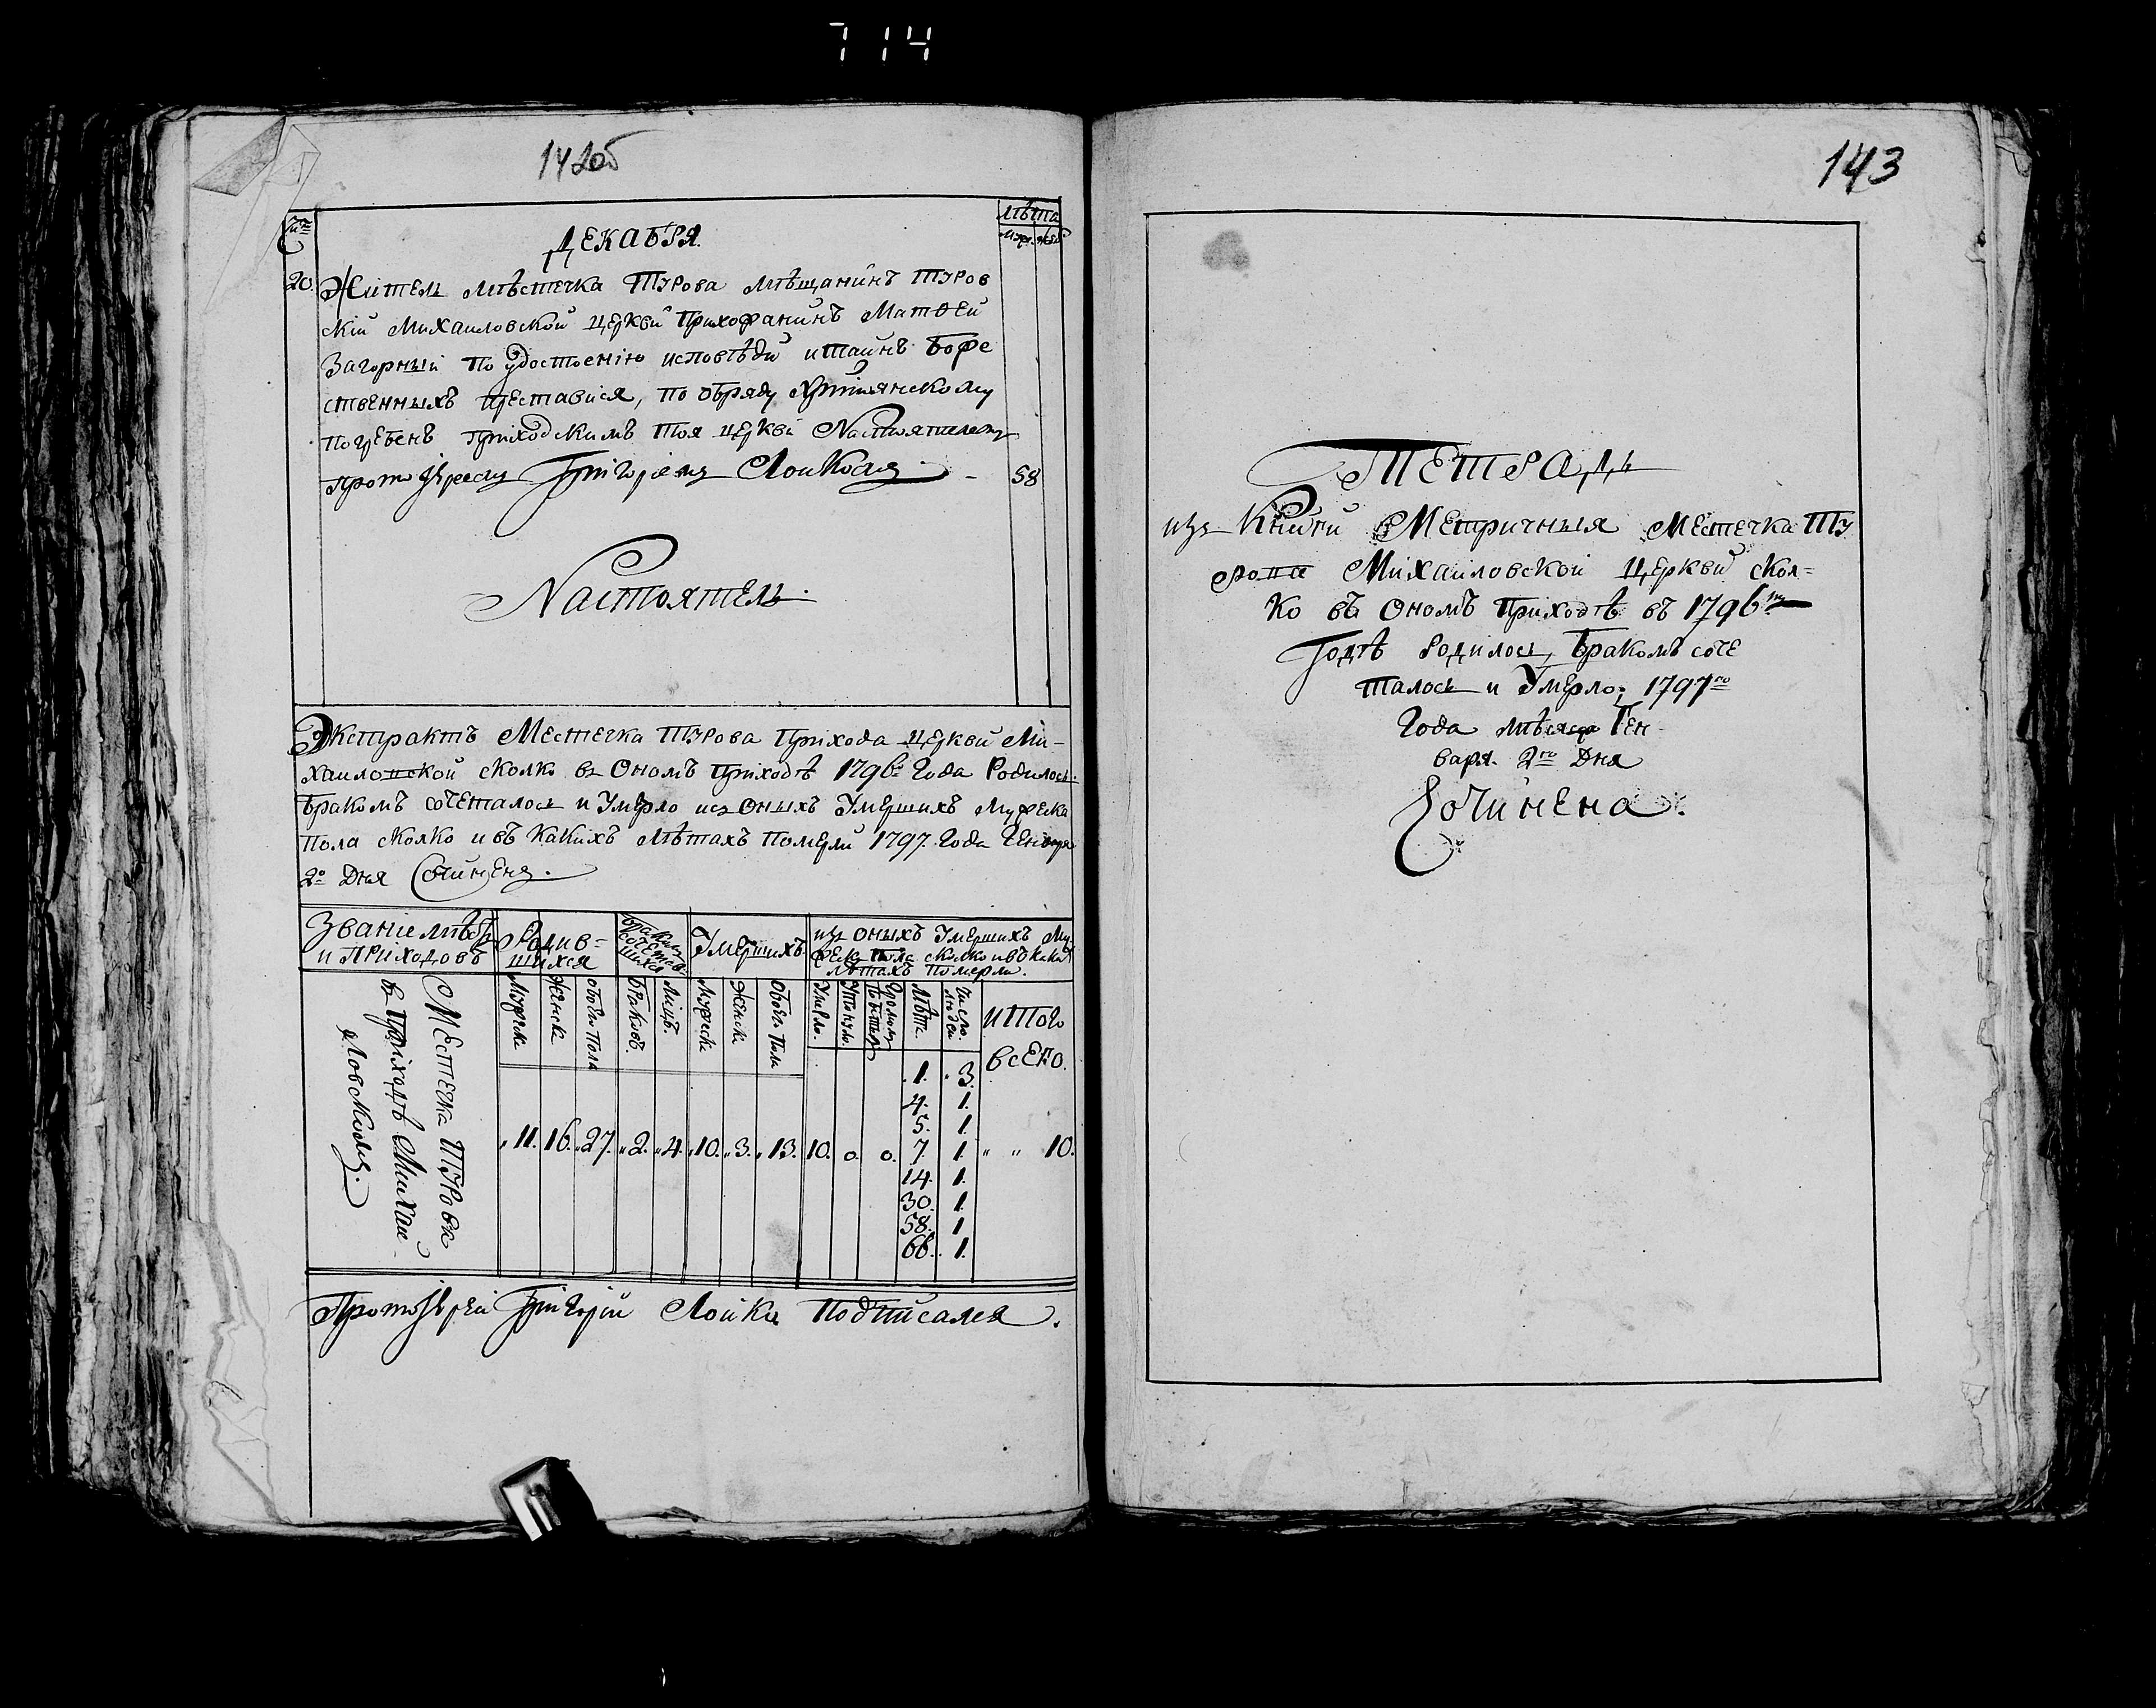 714
142об
Число
ДЕКАБРЯ.
лѣта
муж. жен
20. Жітель мѣстечка Турова мѣщанинъ Туров
скій Михаиловской церкви Прихожанинъ Матѳей
Загорный по удостоенію исповѣди и таинъ Боже
ственныхъ преставися, по обряду христіянскому
погребенъ пріходскимъ тоя церкви Настоятелемъ
протоіереемъ Григоріемъ Лойкомъ - 58
Настоятель.
Экстрактъ Местечка Турова Пріхода церкви Мі-
хаиловской сколко въ Ономъ пріходѣ 1796: Года Родилось.
Бракомъ сочеталось и Умерло изъ оныхъ Умершихъ Мужеска
Пола сколко и въ какихъ лѣтахъ Померли 1797. Года Генваря
2о Дня Сочиненъ.
Званіе мѣстъ
и Приходовъ
Родив=
шихся
Бракомъ
сочетав-
шихся
Умершихъ
изъ оныхъ Умершихъ Му-
жеска Пола сколко и въ какихъ
лѣтахъ Померли.
Мужеска
Женска
обоего Пола
Браковъ.
Лицъ.
Мужеска
Женска
обоего Пола
Умерло.
Утонуло.
Громомъ
Побитыхъ
Лѣта.
Число
людей
Итого
всего.
Местечка Туровк
въ Пріходѣ Михаи-
ловскомъ.
„ 11. 16. „27. „2. „4. „10. „3. „ 13. 10. 0. 0. „ „ 10.
1. 3.
4. 1.
5. 1.
7. 1.
14. 1.
30. 1.
58. 1
66. 1.
Протоіерей Григорій Лойка Подписался.
143
ТЕТРАДЬ
изъ Книги Метричныя Местечка Ту
рова Міхаиловской церкви скол=
ко въ Ономъ Приходѣ въ 1796мъ
Годѣ Родилось, Бракомъ соче
талось и Умерло; 1797го
Года мѣсяца Ген-
варя. 2го Дня
Сочинена.